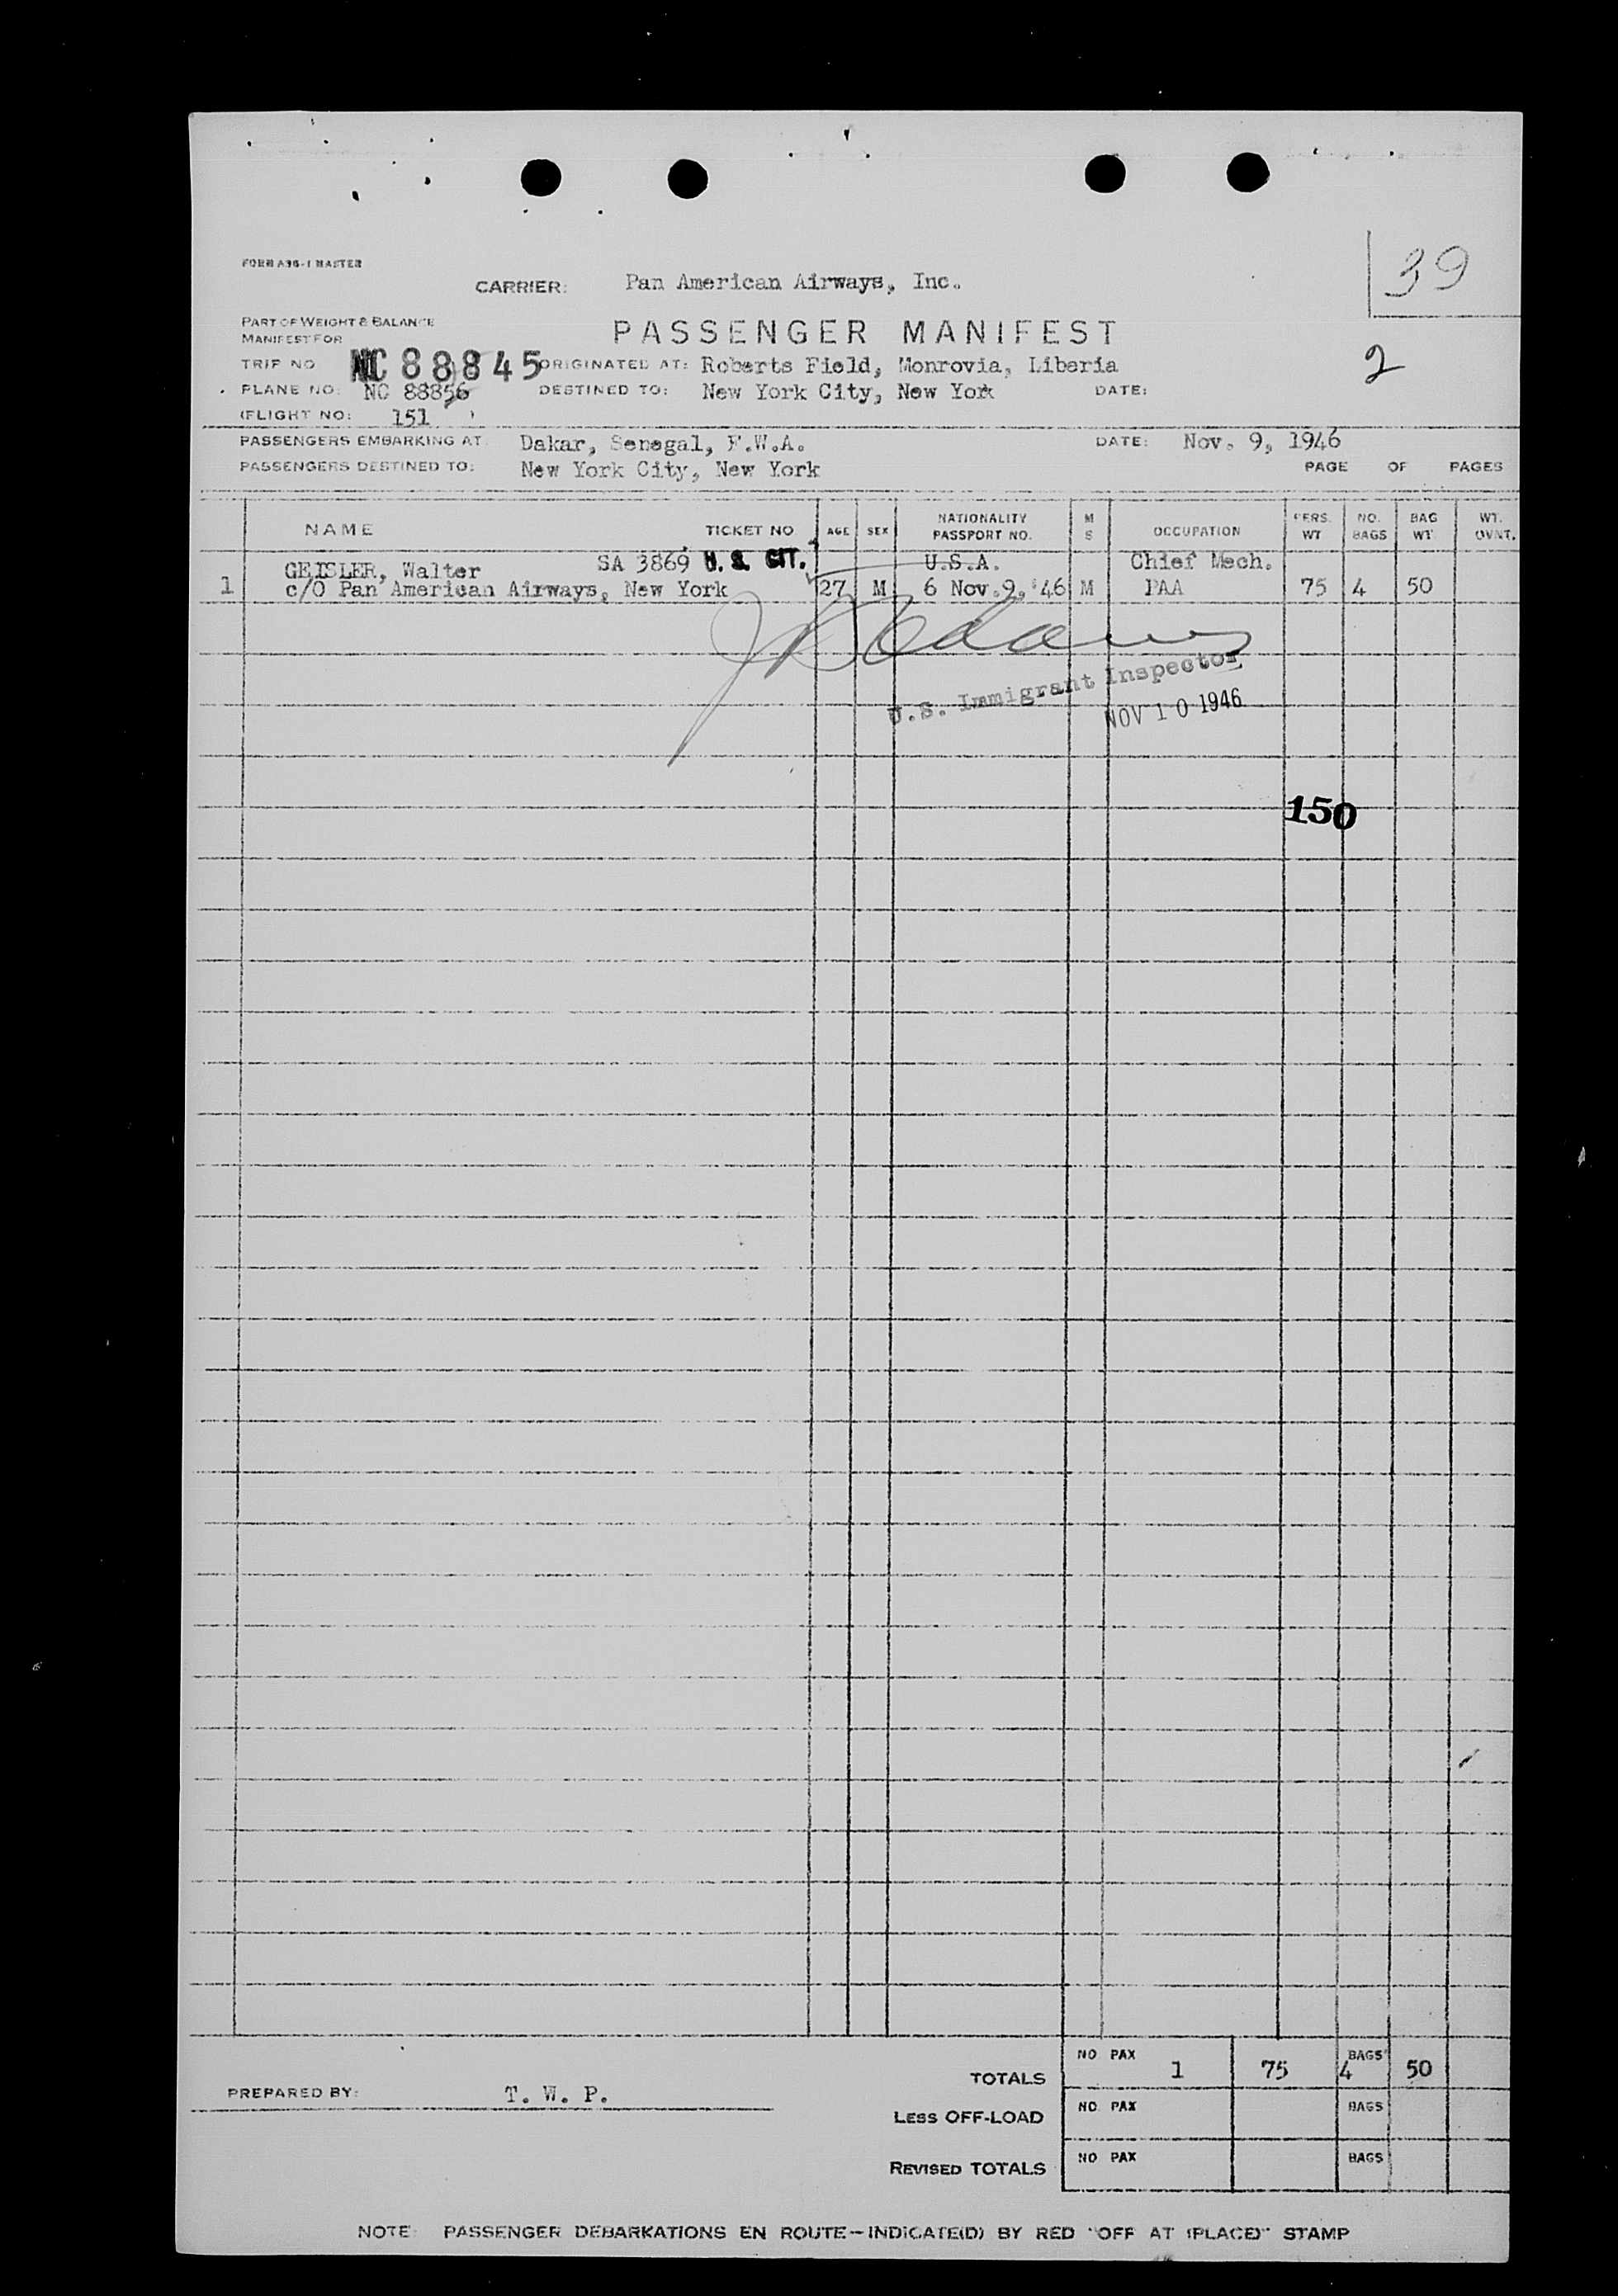 39
FORM A96-1 MASTER
CARRIER: Pan American Airways, Inc.
PART OF WEIGHT & BALANCE
MANIFEST FOR
PASSENGER MANIFEST
2
TRIP NO NC 88845 ORIGINATED AT: Roberts Field, Monrovia, Liberia
PLANE NO: NC 88856 DESTINED TO: New York City, New York DATE:
(FLIGHT NO: 151 )
PASSENGERS EMBARKING AT Dakar, Senegal, F.W.A. DATE: Nov. 9, 1946
PASSENGERS DESTINED TO: New York City, New York PAGE OF PAGES
NAME TICKET NO AGE SEX NATIONALITY PASSPORT NO. M S OCCUPATION PERS. WT NO. BAGS BAG WT WT. OVNT.
GEISLER, Walter SA 3869 U. S. CIT. U.S.A. Chief Mech.
1 c/O Pan American Airways, New York 27 M 6 Nov.9,'46 M PAA 75 4 50
U.S. Immigrant Inspector
NOV 10 1946
150
TOTALS NO PAX 1 75 BAGS 4 50
PREPARED BY: T. W. P.
LESS OFF-LOAD NO. PAX BAGS
REVISED TOTALS NO PAX BAGS
NOTE: PASSENGER DEBARKATIONS EN ROUTE—INDICATE(D) BY RED "OFF AT (PLACE)" STAMP